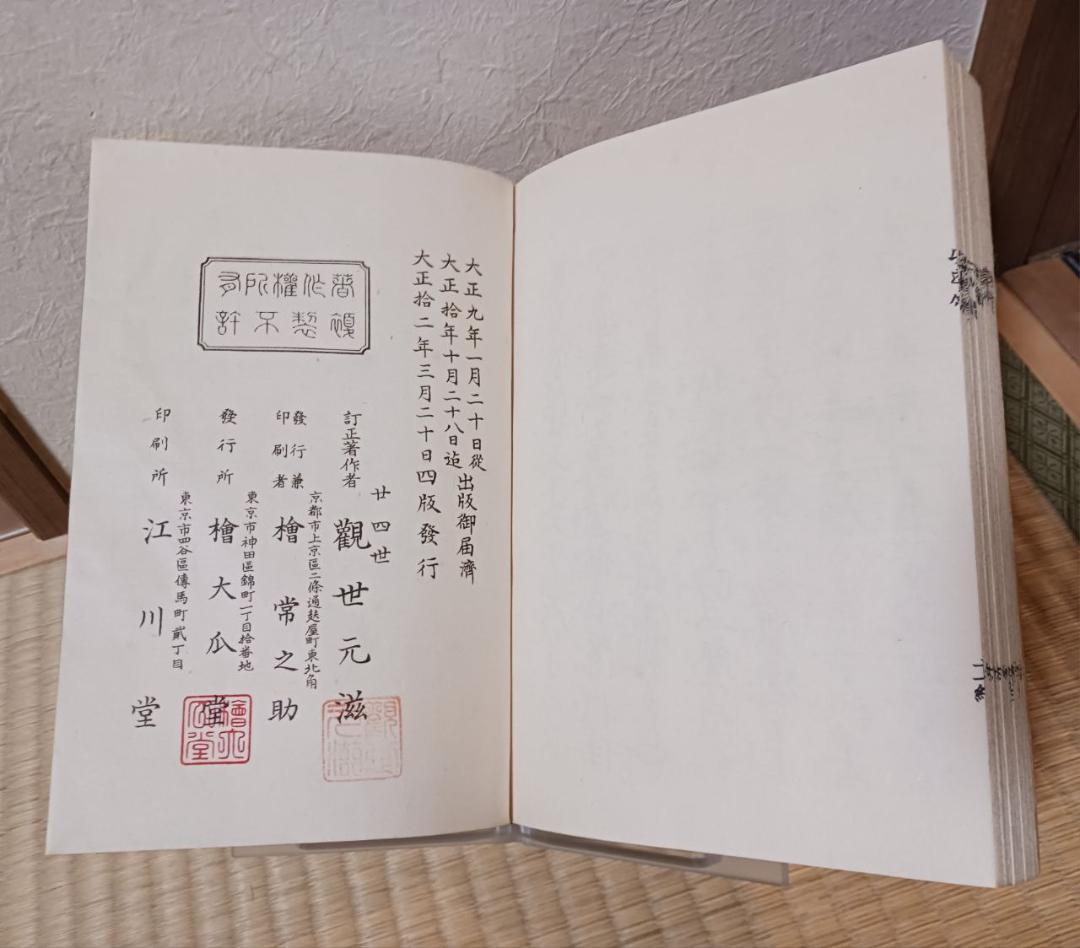 大正九年一月二十日從
大正拾年十月二十八日迠
出版御届濟
大正拾二年三月二十日四版發行
著作權所有
不許複製
訂正著作者
廿四世
觀世元滋
京都市上京區二條通麩屋町東北角
發行兼
印刷者
檜常之助
東京市神田區錦町一丁目拾番地
發行所
檜大瓜堂
東京市四谷區傳馬町貳丁目
印刷所
江川堂